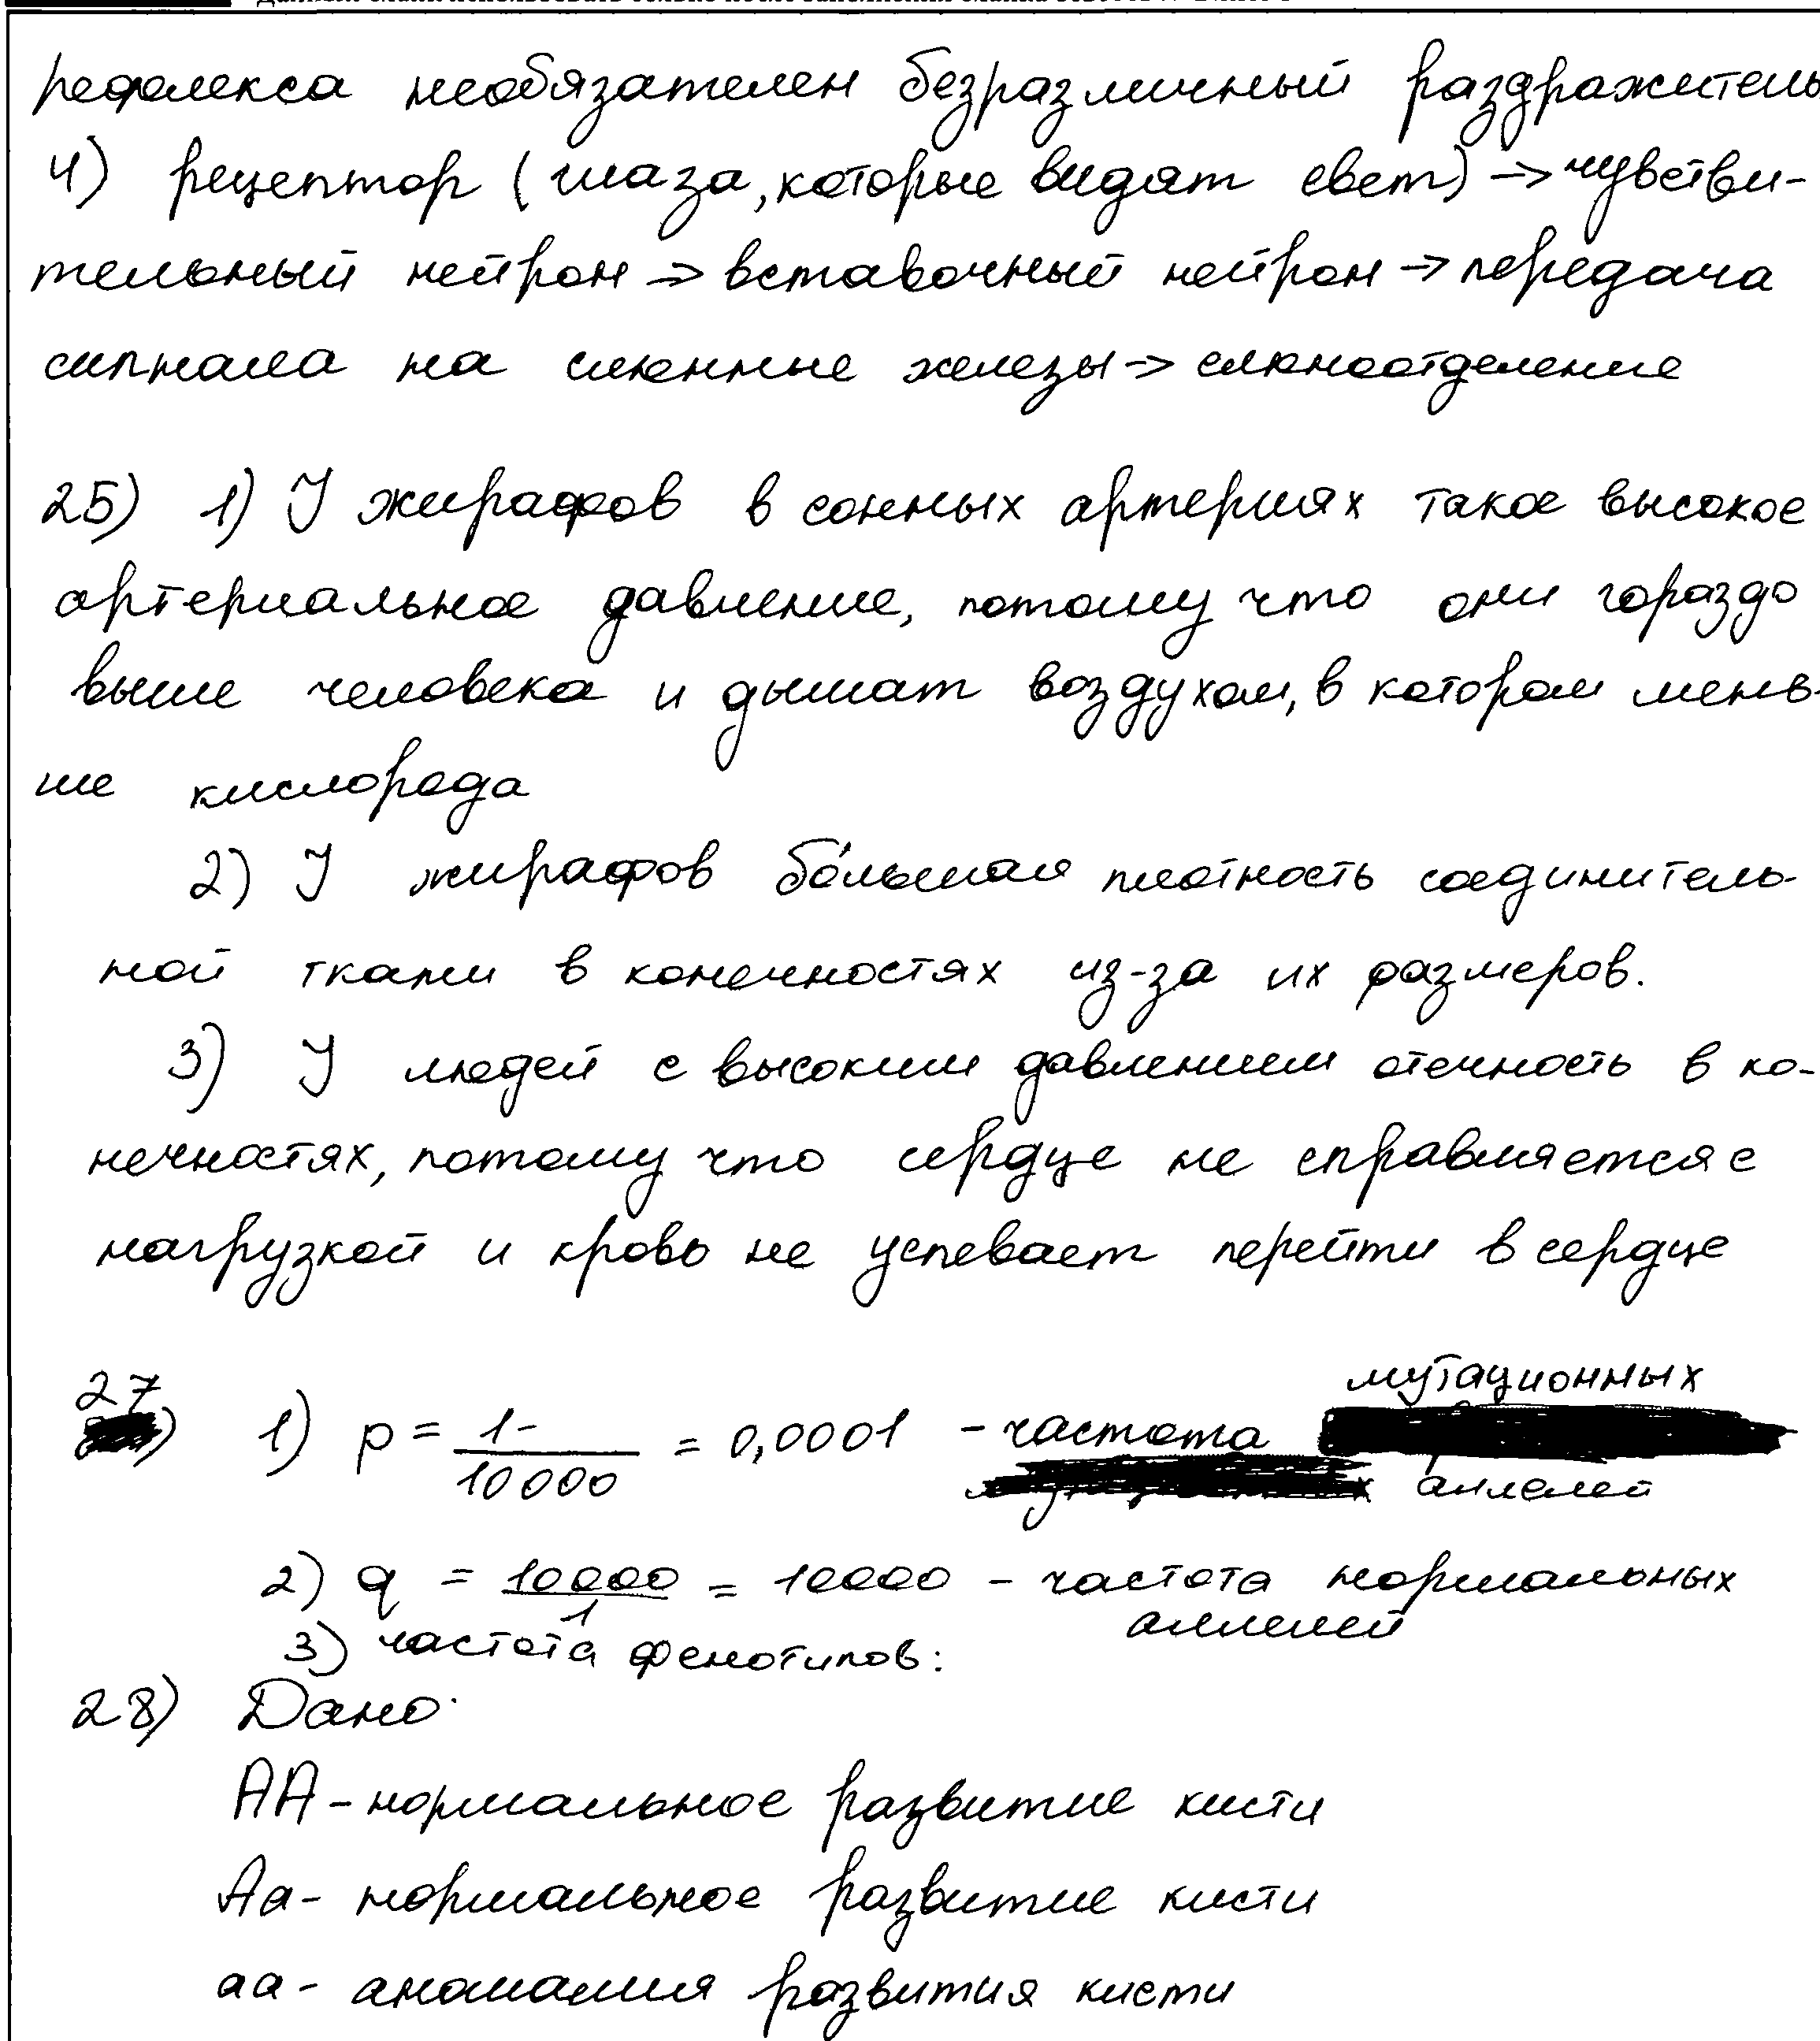 рефлекса необязателен безразличный раздражитель
4) рецептор (глаза, которые видят свет) → чувстви-
тельный нейрон → вставочный нейрон → передача
сигнала на слюнные железы → слюноотделение
25) 1) У жирафов в сонных артериях такое высокое
артериальное давление, потому что они гораздо
выше человека и дышат воздухом, в котором мень-
ше кислорода
2) У жирафов бо́льшая плотность соединитель-
ной ткани в конечностях из-за их размеров.
3) У людей с высоким давлением отечность в ко-
нечностях, потому что сердце не справляется с
нагрузкой и кровь не успевает перейти в сердце
27) 1) p = 1/10000 = 0,0001 - частота мутационных
аллелей
2) q = 10000/1 = 10000 - частота нормальных
аллелей
3) частота фенотипов:
28) Дано:
АА - нормальное развитие кисти
Аа - нормальное развитие кисти
аа - аномалия развития кисти